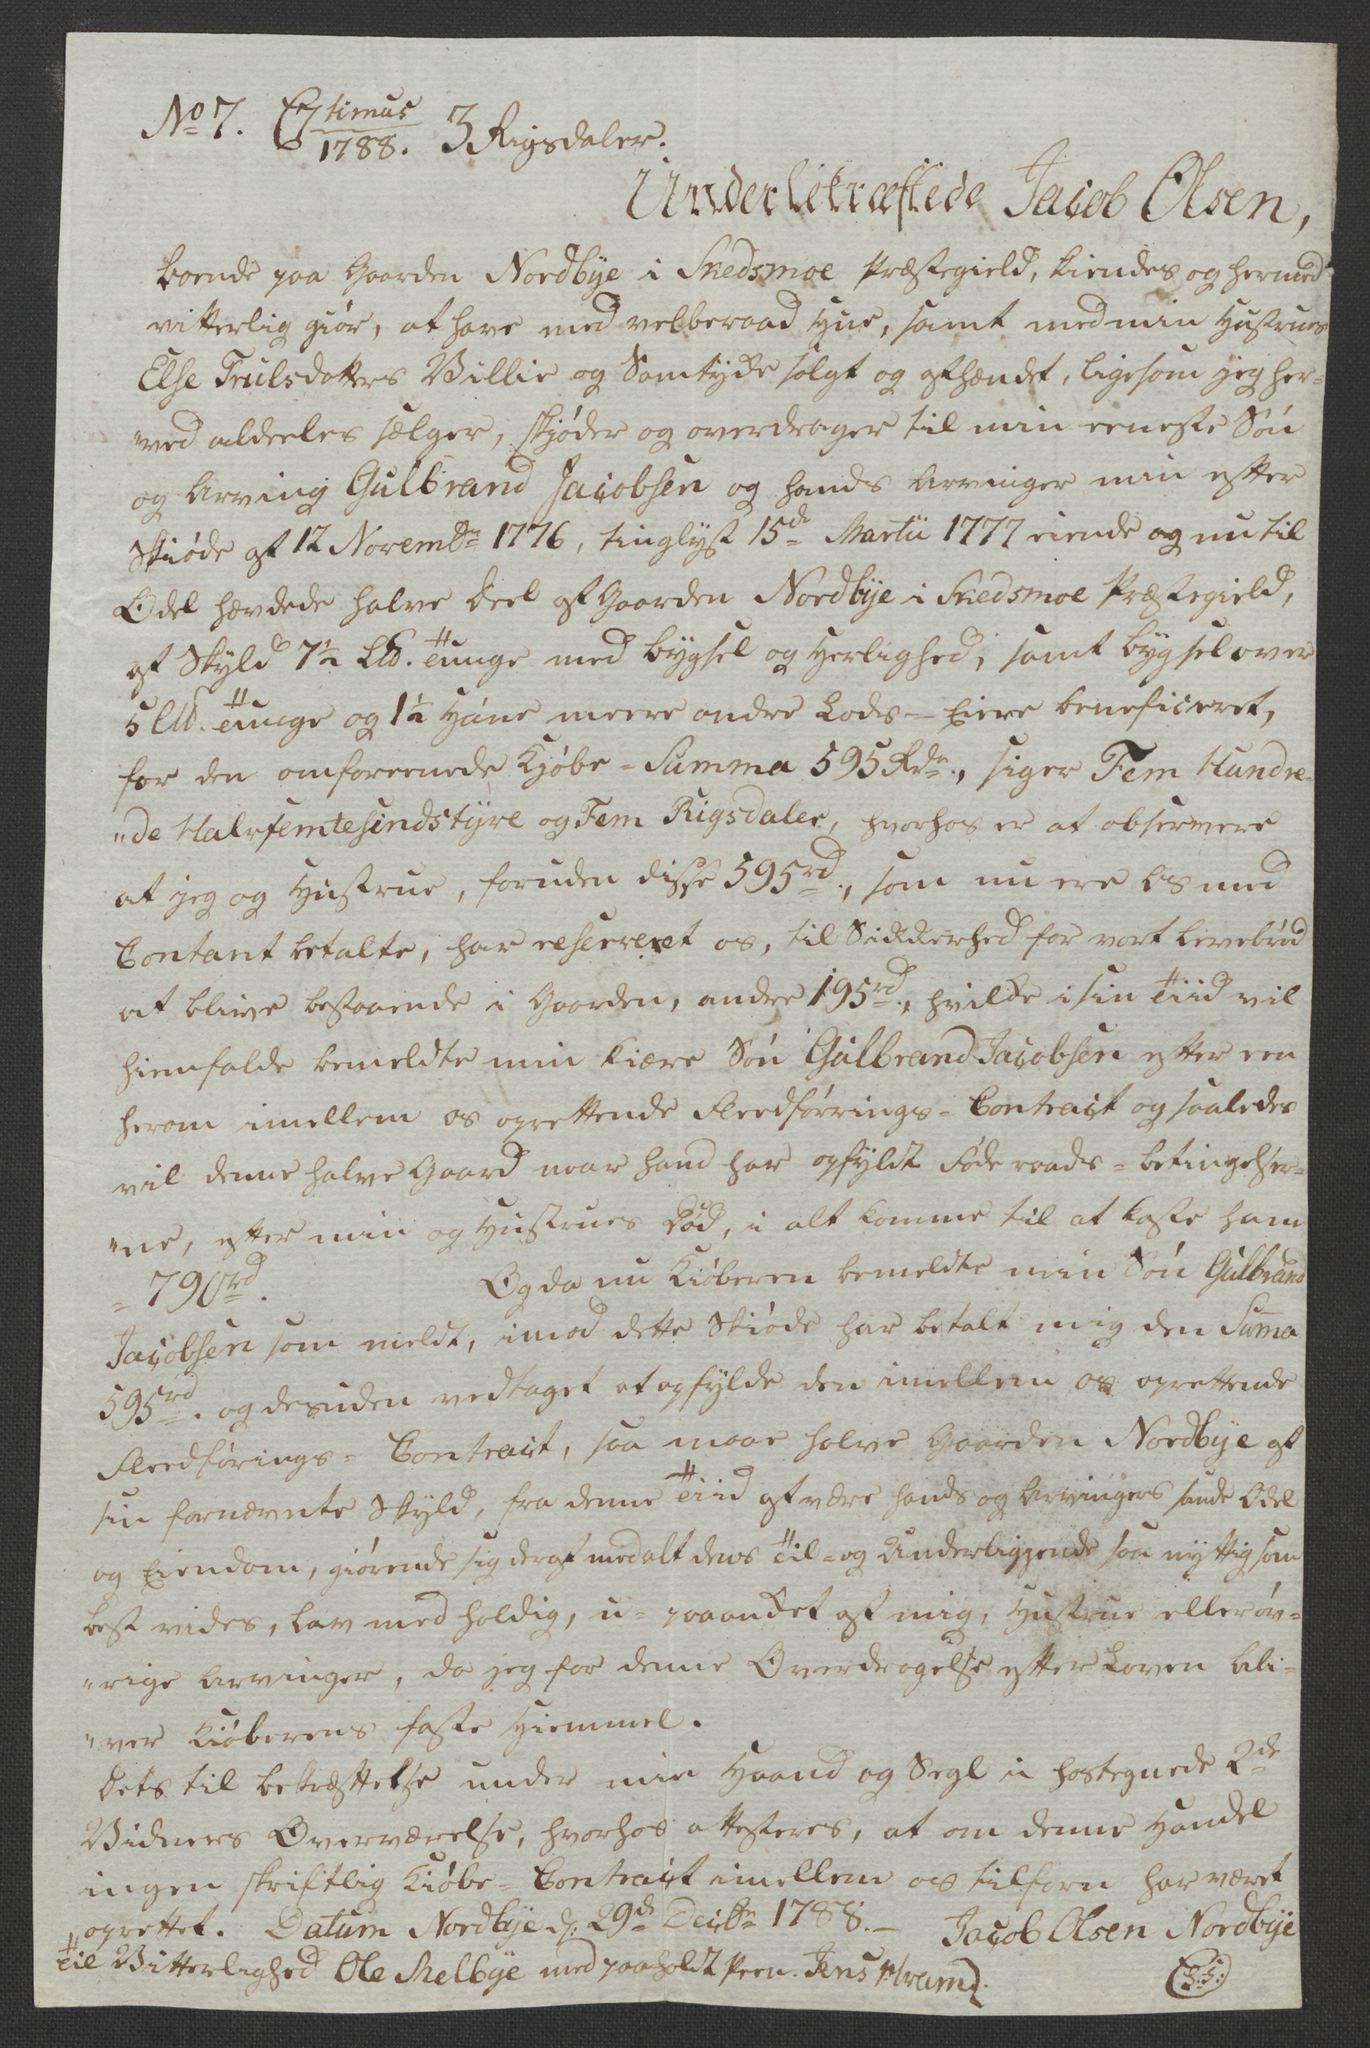 No 7. C 7timus 1788. 3 Rigsdaler.
Underbekræftede Jacob Olsen,
boende paa Gaarden Nordbye i Skedsmoe Præstegield, kiendes og hermed
vitterlig giør, at have med velberaad Hue, samt med min Hustrues
Else Trulsdatters Villie og Samtyde solgt og afhændet, ligesom jeg her-
"ved aldeeles sælger, skjøder og overdrager til min eeneste Søn
og Arving Gulbrand Jacobsen og hands Arvinger min efter
Skiøde af 12 Novembr 1776, tinglyst 15de Martii 1777 eiende og nu til
Odel hævdede halve Deel af Gaarden Nordbye i Skedsmoe Præstegield,
af Skyld 7½ L℔. Tunge med bygsel og Herlighed, samt bygsel over
5 L℔. Tunge og 1½ Høne meere andre Lods-Eiere beneficeret,
for den omforeenede Kjøbe-Summa 595 Rdr., siger Fem Hundre-
"de Halvfemtesindstyve og Fem Rigsdaler, hvorhos er at observere
at jeg og Hustrue, foruden disse 595rd., som nu ere os med
Contant betalte, har reserveret os, til Sikkerhed for vort Levebrød
at blive bestaaende i Gaarden, andre 195rd., hvilke i sin Tiid vil
hiemfalde bemeldte min kiære Søn Gulbrand Jacobsen efter een
herom imellem os oprettende Fleedførings-Contract og saaledes
vil denne halve Gaard naar hand har opfyldt Føderaads-betingelser-
"ne, efter min og Hustrues Død, i alt komme til at koste ham
= 790rd. Og da nu Kiøberen bemeldte min Søn Gulbrand
Jacobsen som meldt, imod dette Skiøde har betalt mig den Suma
595rd. og desuden vedtaget at opfylde den imellem os oprettende
Fleedførings-Contract, saa maae halve Gaarden Nordbye af
sin fornævnte Skyld, fra denne Tiid at være hands og Arvingers sande Odel
og Eiendom, giørende sig deraf med alt dens Til- og Underliggende saa nyttig som
best vides, Lavmedholdig, u-paaandket af mig, Hustrue eller øv-
"rige Arvinger, da jeg for denne Overdragelse efter Loven bli-
"ver Kiøberens faste Hiemmel.
Dets til bekræftelse under min Haand og Segl i hostegnede 2de
Vidners Overværelse, hvorhos attesteres, at om denne Handel
ingen skriftlig Kiøbe-Contract imellem os tilforn har været
oprettet. Datum Nordbye d. 29de Decbr 1788. - Jacob Olsen Nordbye
Til Vitterlighed Ole Melbye med paaholdt Peen. Jens (L.S.)